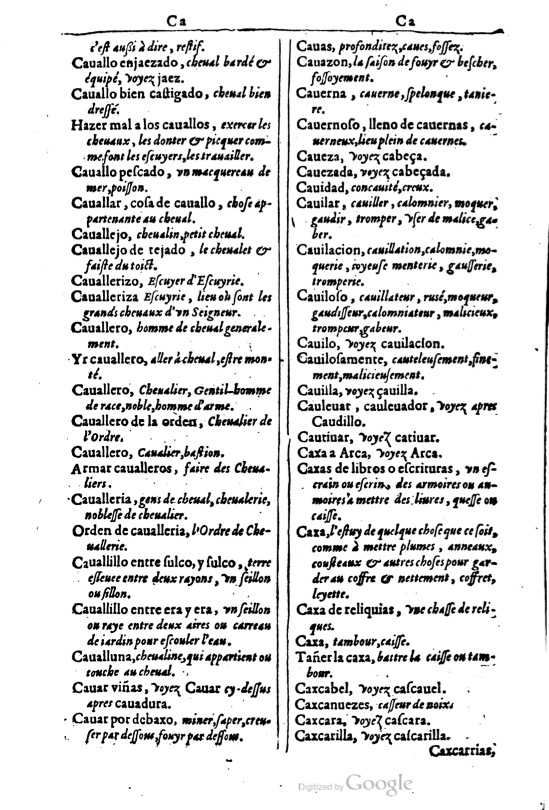 Ca
c'eſt auſſi à dire, reſtif.
Cauallo enjaezado, cheual bardé &
équipé, voyez jaez.
Cauallo bien caſtigado, cheual bien
dreſſé.
Hazer mal a los cauallos, exercer les
cheuaux, les donter & picquer com-
me font les eſcuyers, les trauailler.
Cauallo peſcado, vn macquereau de
mer, poiſſon.
Cauallar, coſa de cauallo, choſe ap-
partenante au cheual.
Cauallejo, cheualin, petit cheual.
Cauallejo de tejado, le cheualet &
faiſte du toict.
Cauallerizo, Eſcuyer d'Eſcuyrie.
Caualleriza Eſcuyrie, lieu où ſont les
grands cheuaux d'vn Seigneur.
Cauallero, homme de cheual generale-
ment.
Yr cauallero, aller à cheual, eſtre mon-
té.
Cauallero, Cheualier, Gentil-homme
de race, noble, homme d'arme.
Cauallero de la orden, Cheualier de
l'Ordre.
Cauallero, Caualier, baſtion.
Armar caualleros, faire des Cheua-
liers.
Caualleria, gens de cheual, cheualerie,
nobleſſe de cheualier.
Orden de caualleria, l'Ordre de Che-
uallerie.
Cauallillo entre ſulco, y ſulco, terre
eſleuee entre deux rayons, vn ſeillon
ou ſillon.
Cauallillo entre era y era, vn ſeillon
ou raye entre deux aires ou carreau
de iardin pour eſcouler l'eau.
Caualluna, cheualine, qui appartient ou
touche au cheual.
Cauar viñas, voyez Cauar cy-deſſus
apres cauadura.
Cauar por debaxo, miner, ſaper, creu-
ſer par deſſous, fouyr par deſſous.
Ca
Cauas, profonditez, caues, foſſez.
Cauazon, la ſaiſon de fouyr & beſcher,
foſſoyement.
Cauerna, cauerne, ſpelonque, tanie-
re.
Cauernoſo, lleno de cauernas, ca-
uerneux, lieu plein de cauernes.
Caueza, voyez cabeça.
Cauezada, voyez cabeçada.
Cauidad, concauité, creux.
Cauilar, cauiller, calomnier, moquer,
gaudir, tromper, vſer de malice, ga-
ber.
Cauilacion, cauillation, calomnie, mo-
querie, ioyeuſe menterie, gauſſerie,
tromperie.
Cauiloſo, cauillateur, ruſé, moqueur,
gaudiſſeur, calomniateur, malicieux,
trompeur, gabeur.
Cauilo, voyez cauilacion.
Cauiloſamente, cauteleuſement, fine-
ment, malicieuſement.
Cauilla, voyez çauilla.
Cauleuar, cauleuador, voyez apres
Caudillo.
Cautiuar, voyez catiuar.
Caxa a Arca, voyez Arca.
Caxas de libros o eſcrituras, vn eſ-
crain ou eſcrin, des armoires ou au-
moires à mettre des liures, queſſe ou
caiſſe.
Caxa, l'eſtuy de quelque choſe que ce ſoit,
comme à mettre plumes, anneaux,
couſteaux & autres choſes pour gar-
der au coffre & nettement, coffret,
leyette.
Caxa de reliquias, vne chaſſe de reli-
ques.
Caxa, tambour, caiſſe.
Tañer la caxa, battre la caiſſe ou tam-
bour.
Caxcabel, voyez caſcauel.
Caxcanuezes, caſſeur de noix.
Caxcara, voyez caſcara.
Caxcarilla, voyez caſcarilla.
Caxcarrias,
Digitized by Google